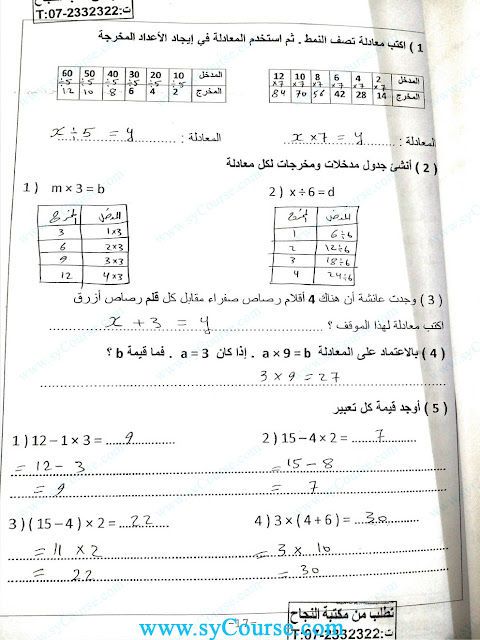 ت:07-2332322:T
www.syCourse.com
1 ) اكتب معادلة تصف النمط . ثم استخدم المعادلة في إيجاد الأعداد المخرجة
المدخل 2 4 6 8 10 12
×7 ×7 ×7 ×7 ×7 ×7
المخرج 14 28 42 56 70 84
10 20 30 40 50 60
÷5 ÷5 ÷5 ÷5 ÷5 ÷5
2 4 6 8 10 12
المعادلة : x × 7 = y
المعادلة : x ÷ 5 = y
( 2 ) أنشئ جدول مدخلات ومخرجات لكل معادلة
1 ) m × 3 = b
المدخل المخرج
1×3 3
2×3 6
3×3 9
4×3 12
2 ) x ÷ 6 = d
المدخل المخرج
6÷6 1
12÷6 2
18÷6 3
24÷6 4
( 3 ) وجدت عائشة أن هناك 4 أقلام رصاص صفراء مقابل كل قلم رصاص أزرق
اكتب معادلة لهذا الموقف ؟ x + 3 = y
( 4 ) بالاعتماد على المعادلة a × 9 = b . إذا كان a = 3 . فما قيمة b ؟
3 × 9 = 27
( 5 ) أوجد قيمة كل تعبير
1 ) 12 – 1 × 3 = 9
= 12 - 3
= 9
2 ) 15 – 4 × 2 = 7
= 15 - 8
= 7
3 ) ( 15 – 4 ) × 2 = 22
= 11 × 2
= 22
4 ) 3 × ( 4 + 6 ) = 30
= 3 × 10
= 30
17
نطلب من مكتبة النجاح
ت:07-2332322:T
www.syCourse.com